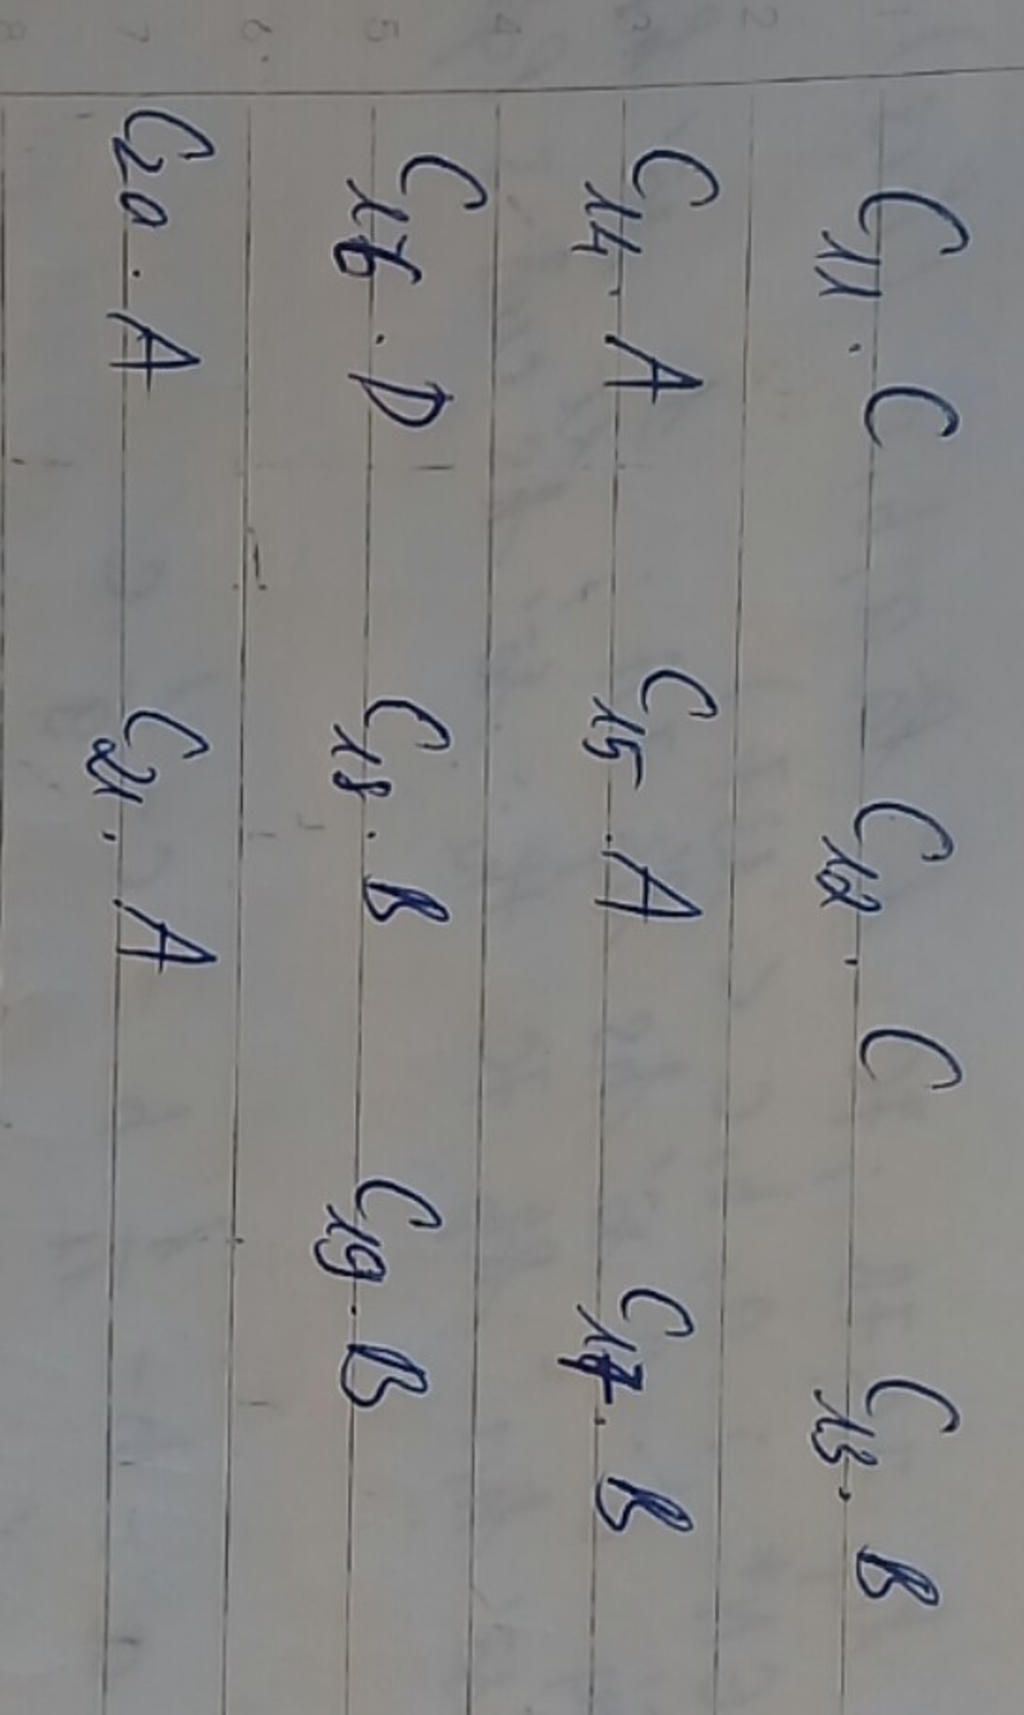 C11. C C12. C C13. B
C14. A C15. A C17. B
C16. D C18. B C19. B
C20. A C21. A